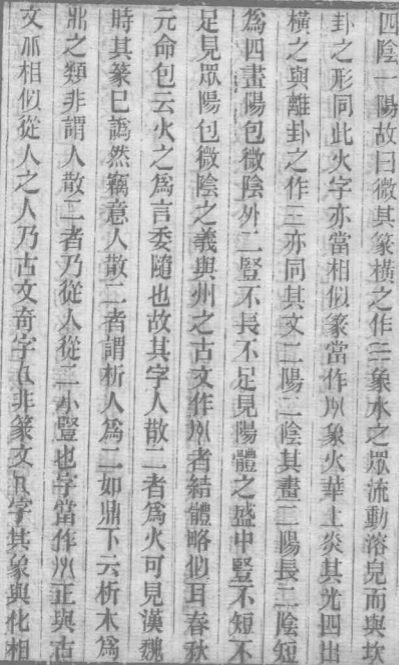 四陰一陽故曰微其篆橫之作三象水之眾流動溶皃而與坎
卦之形同此火字亦當相似篆當作象火華上炎其光四出
橫之與離卦之作三亦同其文二陽二陰其畫二陽長二陰短
為四畫陽包微陰外二豎不長不足見陽體之盛中豎不短不
足見眾陽包微陰之義與州之古文作者結體略似耳春秋
元命包云火之為言委隨也故其字人散二者為火可見漢魏
時其篆已譌然竊意人散二者謂析人為二如鼎下云析木為
鼎之類非謂人散二者乃從人從二小豎也字當作正與古
文相似從人之人乃古文奇字非篆文字其象與化相